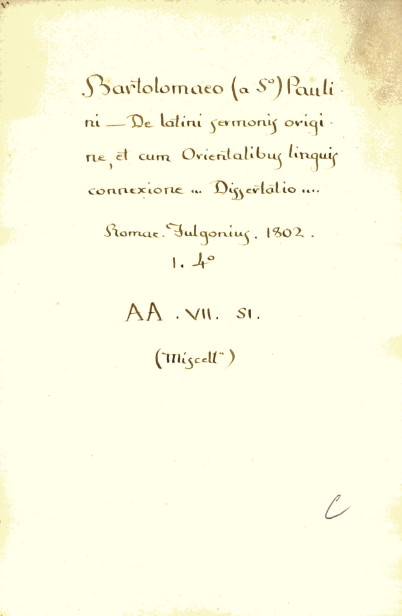 Bartolomaeo (a Sº) Pauli
ni — De latini sermonis origi
ne, et cum Orientalibus linguis
connexione ... Dissertatio ....
Romae. Fulgonius. 1802.
1. 4º
AA. VII. 51.
(Miscellª)
C